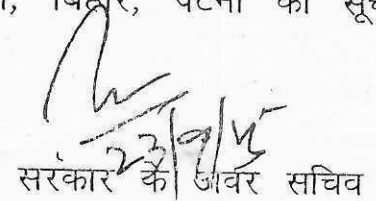 बिहार, पटना को
23/9/15
सरकार के अवर सचिव